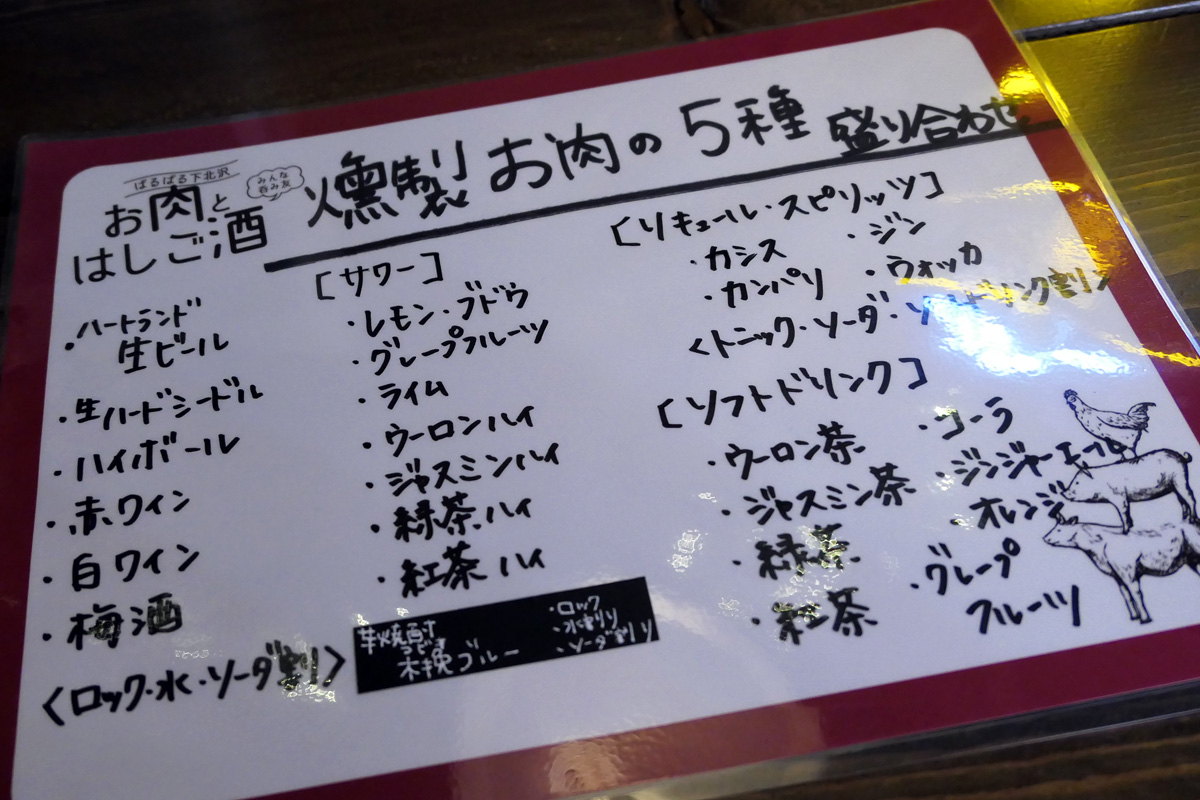 ばるばる下北沢
みんな
呑み友
お肉と
はしご酒
燻製お肉の5種盛り合わせ
・ハートランド
生ビール
・生ハードシードル
・ハイボール
・赤ワイン
・白ワイン
・梅酒
<ロック・水・ソーダ割>
[サワー]
・レモン・ブドウ
・グレープフルーツ
・ライム
・ウーロンハイ
・ジャスミンハイ
・緑茶ハイ
・紅茶ハイ
芋焼酎
木挽ブルー
・ロック
・水割り
・ソーダ割り
[リキュール・スピリッツ]
・カシス
・ジン
・カンパリ
・ウォッカ
<トニック・ソーダ・ソフトドリンク割>
[ソフトドリンク]
・ウーロン茶
・ジャスミン茶
・緑茶
・紅茶
・コーラ
・ジンジャーエール
・オレンジ
・グレープ
フルーツ